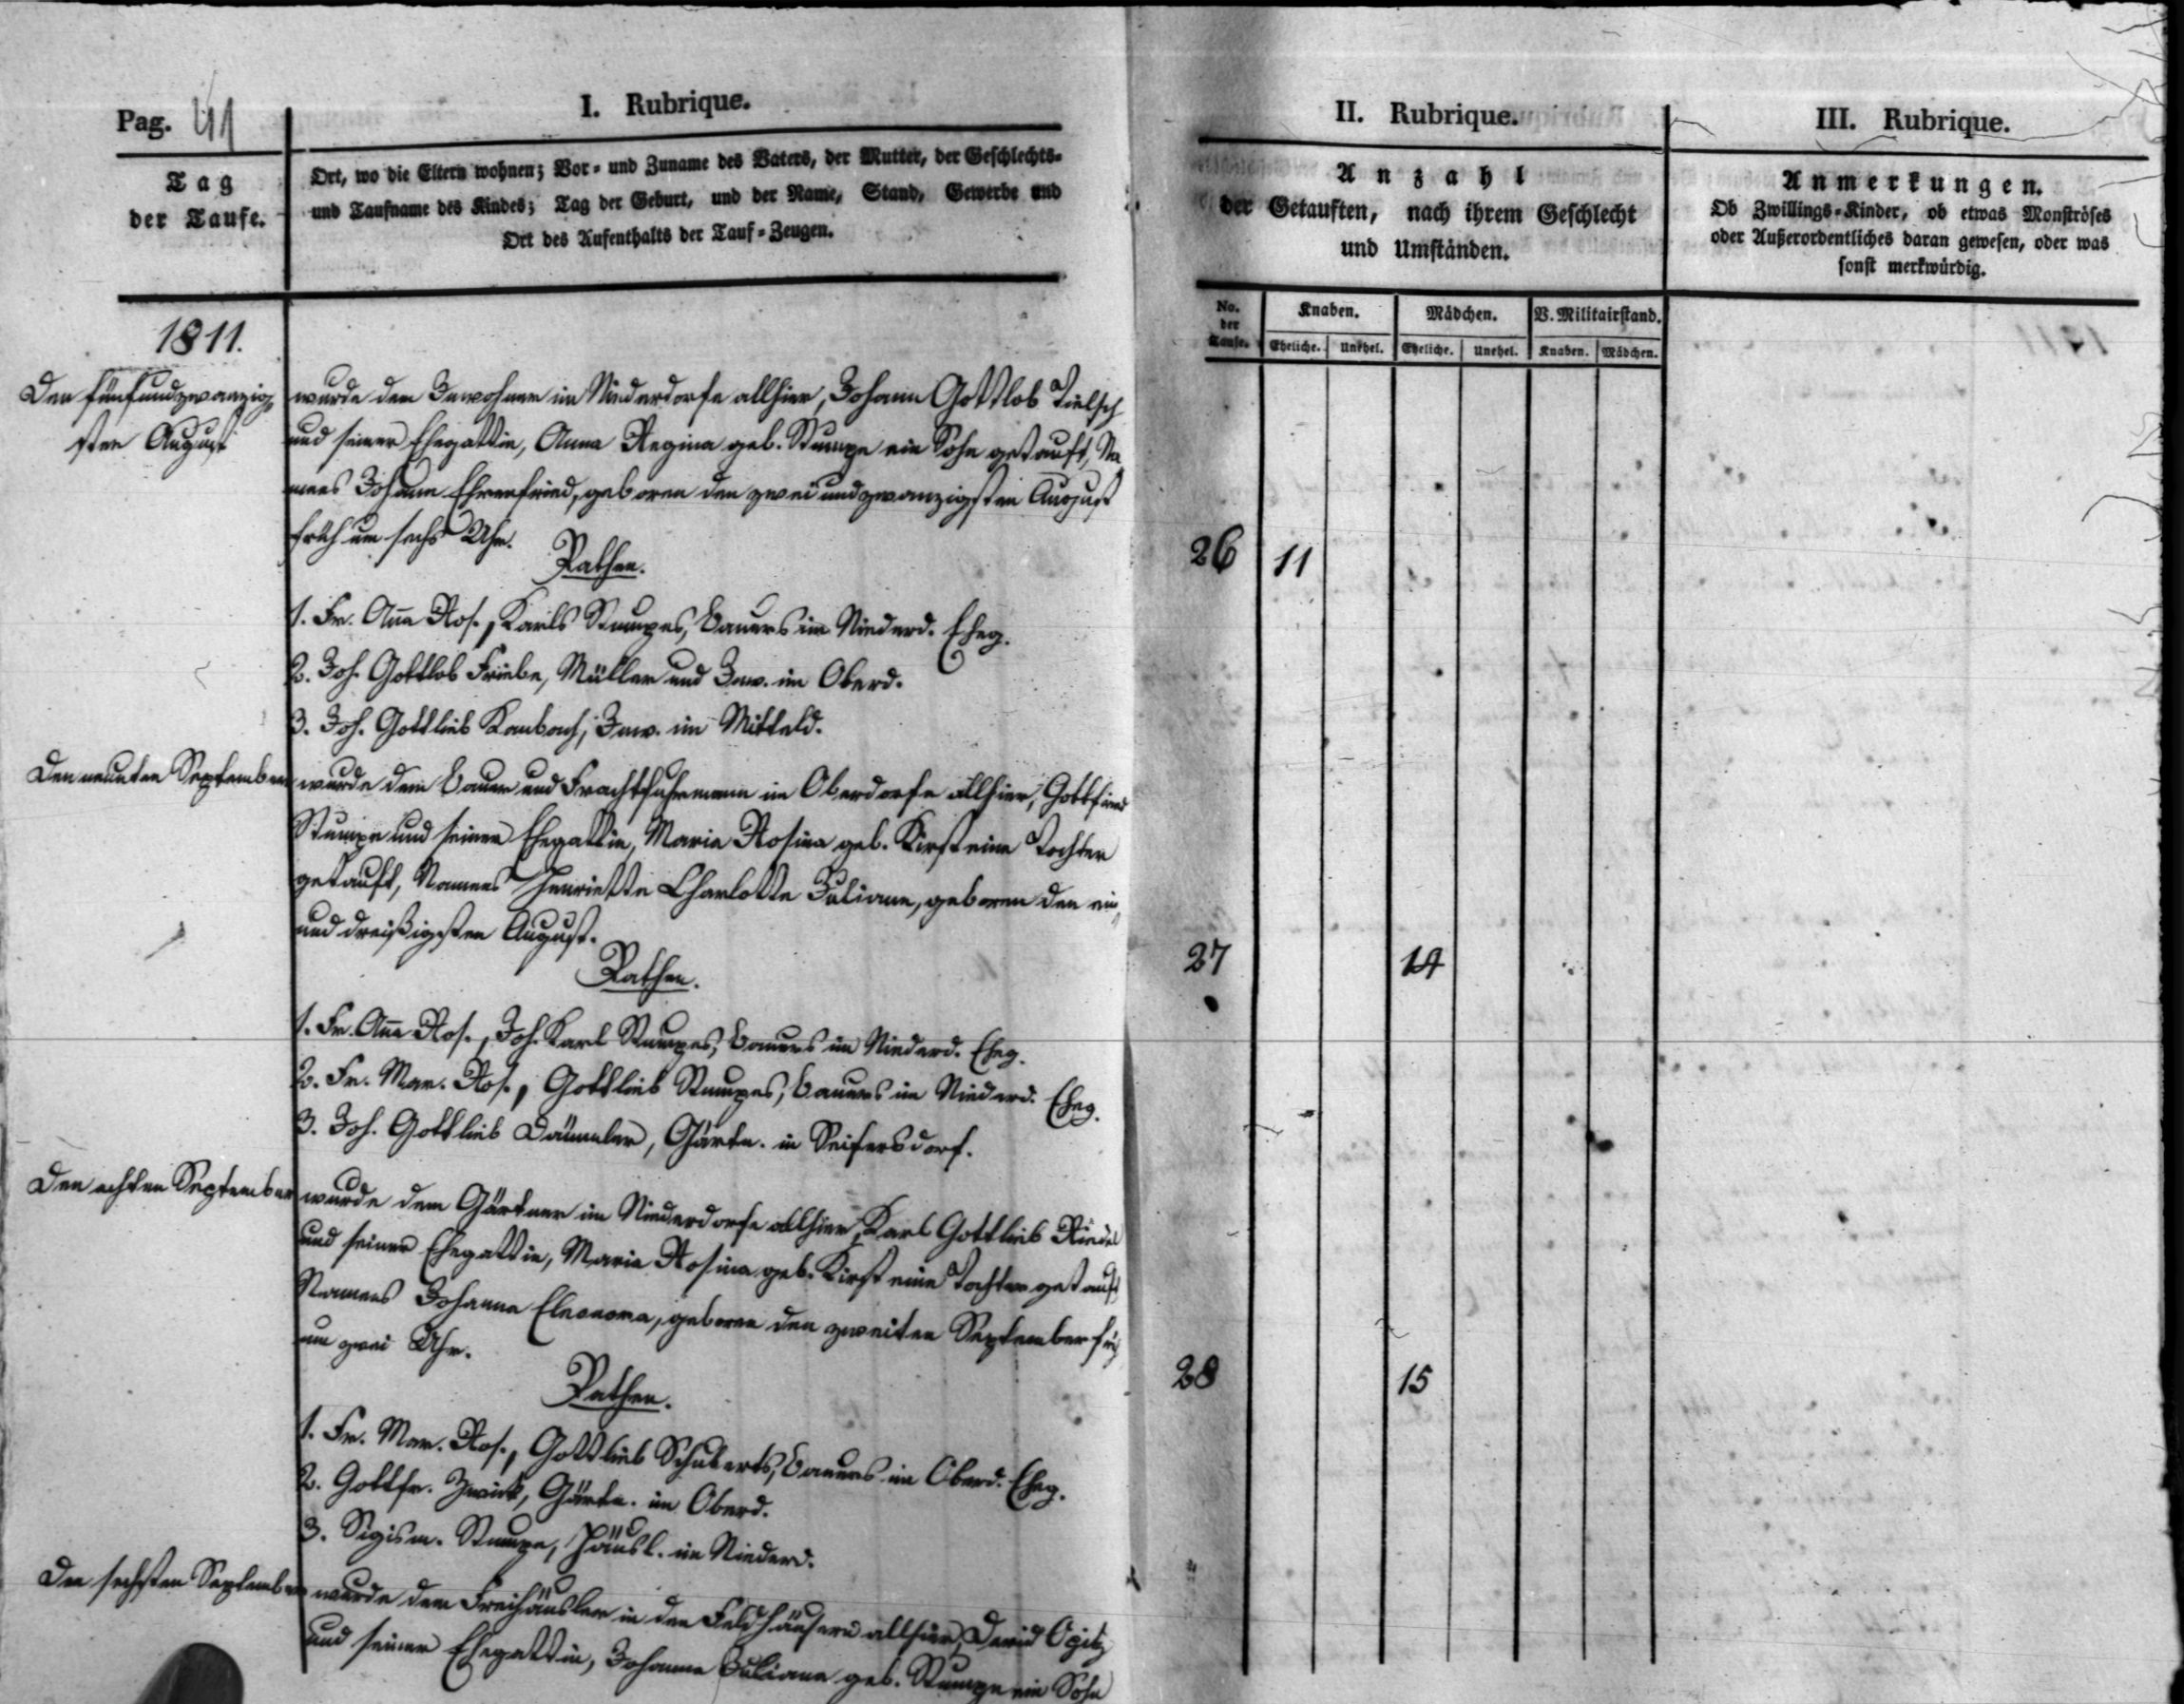 Pag. 41
I. Rubrique.
Tag
der Taufe.
Ort, wo die Eltern wohnen; Vor- und Zuname des Vaters, der Mutter, der Geschlechts-
und Taufname des Kindes; Tag der Geburt, und der Name, Stand, Gewerbe und
Ort des Aufenthalts der Tauf-Zeugen.
1811.
Den fünfundzwanzig-
sten August
wurde dem Inwohner im Niederdorfe allhier, Johann Gottlob Tielsch
und seiner Ehegattin, Anna Regina geb. Stumpe ein Sohn getauft, Na
mens Johann Ehrenfried, geboren den zweiundzwanzigsten August
früh um sechs Uhr.
Pathen.
1. Fr. Anna Ros., Karls Stumpes, Bauers im Niederd. Eheg.
2. Joh. Gottlob Friebe, Müller und Inw. im Oberd.
3. Joh. Gottlieb Kambach, Inw. im Mitteld.
Den neunten September
wurde dem Bauer und Frachtfuhrmann im Oberdorfe allhier, Gottfried
Stumpe und seiner Ehegattin, Maria Rosina geb. Kirst eine Tochter
getauft, Namens Henriette Charlotte Juliane, geboren den ein
und dreißigsten August.
Pathen.
1. Fr. Anna Ros., Joh. Karl Stumpes, Bauers im Niederd. Eheg.
2. Fr. Mar. Ros., Gottlieb Stumpes, Bauers im Niederd. Eheg.
3. Joh. Gottlieb Däumler, Gärtn. in Seifersdorf.
Den achten September
wurde dem Gärtner im Niederdorfe allhier, Karl Gottlieb Riedel
und seiner Ehegattin, Maria Rosina geb. Kirst eine Tochter getauft
Namens Johanna Eleonora, geboren den zweiten September früh
um zwei Uhr.
Pathen.
1. Fr. Mar. Ros., Gottlieb Schuberts, Bauers im Oberd. Eheg.
2. Gottfr. Zwick, Gärtn. im Oberd.
3. Sigism. Stumpe, Häusl. im Niederd.
Den sechsten September
wurde dem Freihäusler in den Feldhäusern allhier, David Opitz
und seiner Ehegattin, Johanna Juliana geb. Stumpe ein Sohn
II. Rubrique.
Anzahl
der Getauften, nach ihrem Geschlecht
und Umständen.
No. der Taufe.
Knaben.
Mädchen.
V. Militairstand.
Eheliche. Unehel. Eheliche. Unehel. Knaben. Mädchen.
26 11
27 14
28 15
III. Rubrique.
Anmerkungen.
Ob Zwillings-Kinder, ob etwas Monströses
oder Außerordentliches daran gewesen, oder was
sonst merkwürdig.